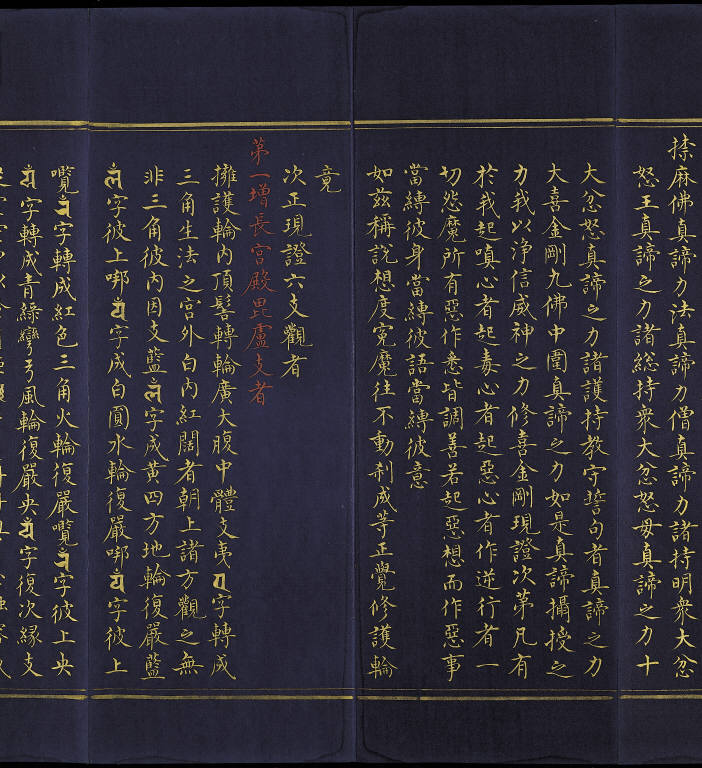 捺麻佛真諦力法真諦力僧真諦力諸持明衆大忿
怒王真諦之力諸総持衆大忿怒母真諦之力十
大忿怒真諦之力諸護持教守誓句者真諦之力
大喜金剛九佛中圍真諦之力如是真諦攝授之
力我以净信威神之力修喜金剛現證次第凡有
於我起嗔心者起毒心者起惡心者作逆行者一
切怨魔所有惡作悉皆調善若起惡想而作惡事
當縛彼身當縛彼語當縛彼意
如兹稱說想度寃魔往不動刹成等正覺修護輪
竟
次正現證六支觀者
第一增長宫殿毘盧支者
擁護輪内頂髻轉輪廣大腹中體支夷字轉成
三角生法之宫外白内紅闊者朝上諸方觀之無
非三角彼内因支藍字成黄四方地輪復嚴藍
字彼上㖿字成白圓水輪復嚴㖿字彼上
囕字轉成紅色三角火輪復嚴囕字彼上央
字轉成青綠彎弓風輪復嚴央字復次緣支